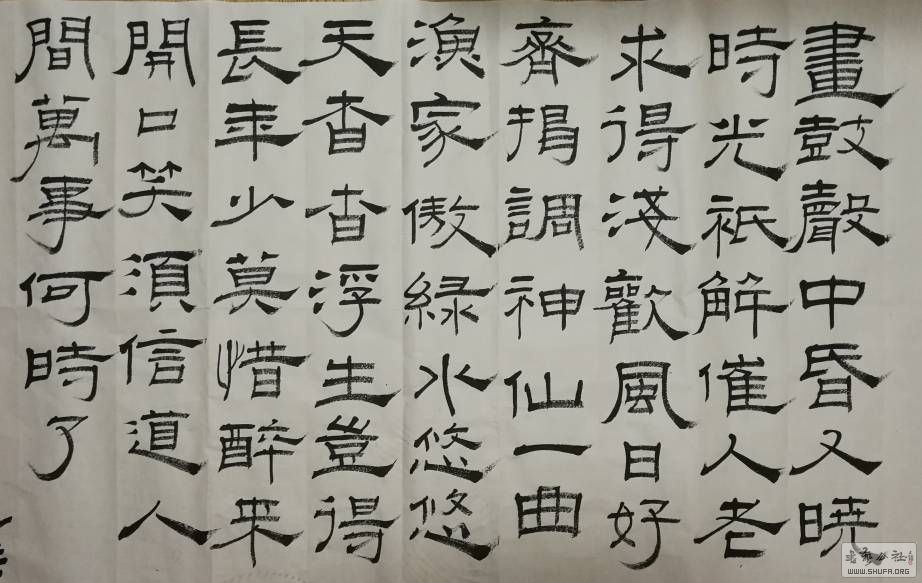 畫鼓聲中昏又曉
時光祇解催人老
求得淺歡風日好
齊揭調神仙一曲
漁家傲綠水悠悠
天杳杳浮生豈得
長年少莫惜醉來
開口笑須信道人
間萬事何時了
WWW.SHUFA.ORG